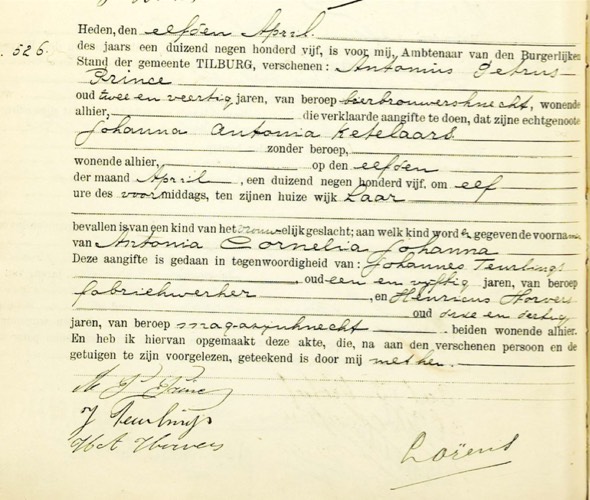 526.
Heden, den elfden April
des jaars een duizend negen honderd vijf, is voor mij, Ambtenaar van den Burgerlijken
Stand der gemeente TILBURG, verschenen: Antonius Petrus
Prince
oud twee en veertig jaren, van beroep bierbrouwersknecht, wonende
alhier, die verklaarde aangifte te doen, dat zijne echtgenoote
Johanna Antonia Ketelaars
zonder beroep,
wonende alhier, op den elfden
der maand April, een duizend negen honderd vijf, om elf
ure des voormiddags, ten zijnen huize wijk Laar
bevallen is van een kind van het vrouwelijk geslacht; aan welk kind word en gegeven de voorna men
van Antonia Cornelia Johanna
Deze aangifte is gedaan in tegenwoordigheid van: Johannes Teurlings
oud een en vijftig jaren, van beroep
fabriekwerker, en Henricus Horvers
oud drie en dertig
jaren, van beroep magazijnknecht beiden wonende alhier.
En heb ik hiervan opgemaakt deze akte, die, na aan den verschenen persoon en de
getuigen te zijn voorgelezen, geteekend is door mij met hen.
A P Prince
J Teurlings
H Horvers